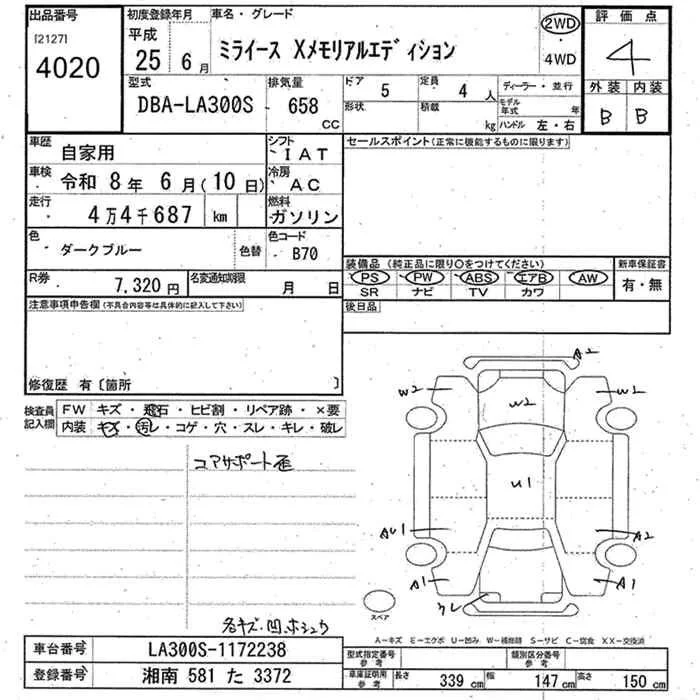 出品番号
[2127]
4020
初度登録年月
平成
25 6月
車名・グレード
ミライース Xメモリアルエディション
2WD
・
4WD
評価点
4
外装 内装
B B
型式
DBA-LA300S
排気量
658
CC
ドア
5
定員
4人
ディーラー・並行
形状
積載
kg
モデル年式
年
ハンドル 左・右
車歴
自家用
シフト
IAT
車検
令和 8年 6月(10日)
冷房
AC
走行
4万4千687 km
燃料
ガソリン
色
ダークブルー
色替
色コード
B70
R券
7,320円
名変通知期限
月 日
セールスポイント(正常に機能するものに限ります)
装備品(純正品に限り○をつけてください)
PS PW ABS エアB AW
SR ナビ TV カワ
新車保証書
有・無
後日品
注意事項申告欄(不具合内容等は具体的に記入して下さい)
修復歴 有〔箇所 〕
検査員記入欄
FW キズ・飛石・ヒビ割・リペア跡・×要
内装 キズ・汚レ・コゲ・穴・スレ・キレ・破レ
コアサポート歪
各キズ・凹ホシュウ
A2
W2
W2
W1
U1
AU1
A2
A1
A1
クレ
スペア
A-キズ E-エクボ U-凹み W-補修跡 S-サビ C-腐食 XX-交換済
車台番号
LA300S-1172238
登録番号
湘南 581 た 3372
型式指定番号
参考
類別区分番号
参考
車庫証明用
参考
長さ 339 cm
幅 147 cm
高さ 150 cm